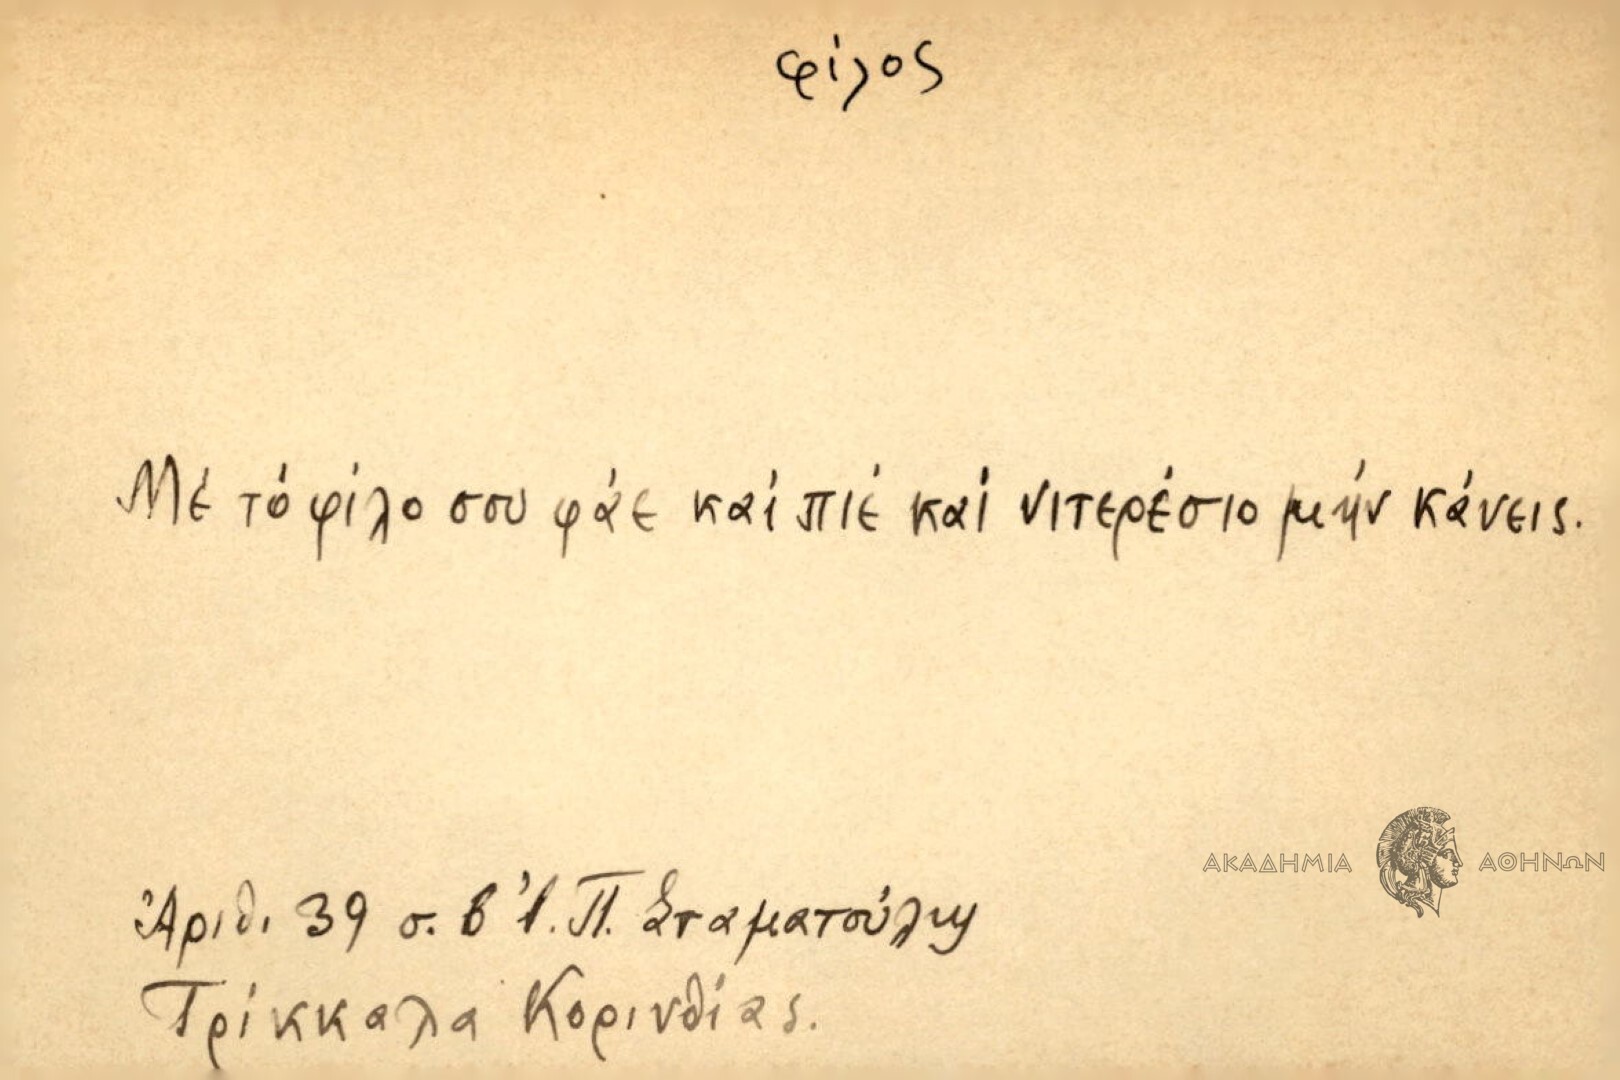 φίλος
Μέ τό φίλο σου φάε καί πιέ καί νιτερέσιο μήν κάνεις.
ΑΚΑΔΗΜΙΑ ΑΘΗΝΩΝ
Ἀριθ. 39 σ. 6 Ἰ. Π. Σταματούλη
Τρίκκαλα Κορινθίας.